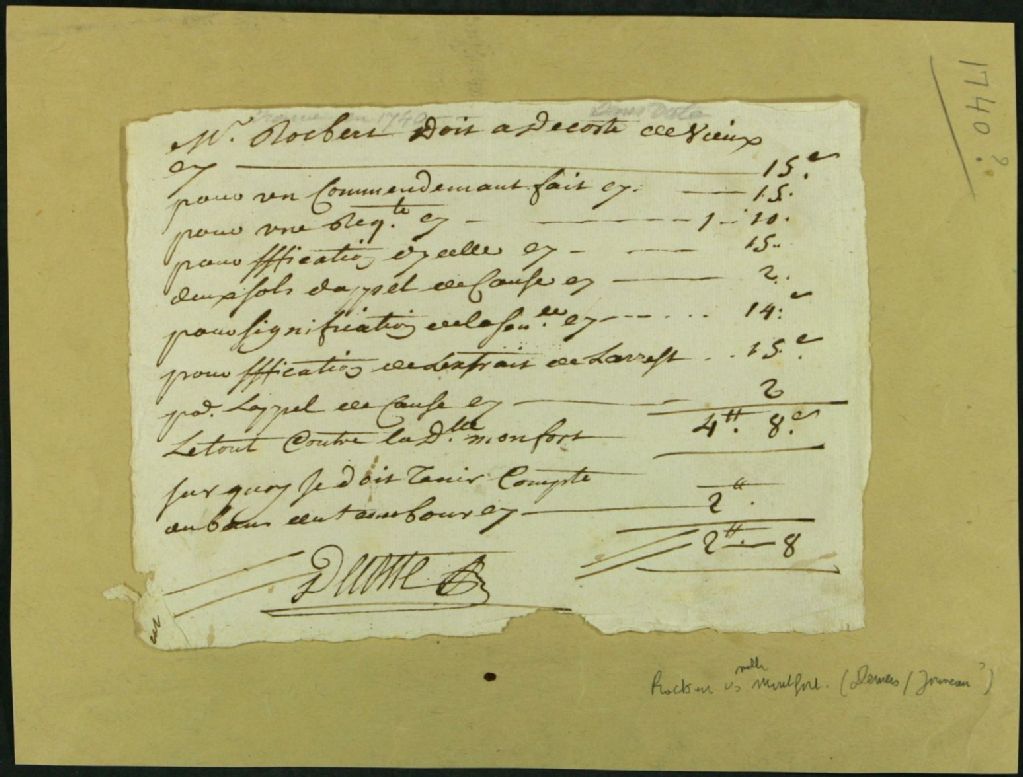 1740?
Mr. Rocbert Doit a Decoste de Vieux
cy 15.s
pour un Commendemant fait cy. 15.
pour une Reqte. cy 1 10.
pour sffication dycelle cy 15.
deux sols dappel de Cause cy 2.
pour signification de la cy 14.s
pour sffication de Lextrait de Larrest 15.s
pr. Lappel de Cause cy 2
Le tout Contre la Dlle monfort 4tt. 8.s
sur quoy Je doit Tenir Compte
du banc du tambour cy 2tt.
2tt 8
Decoste
vs melle Montfort.